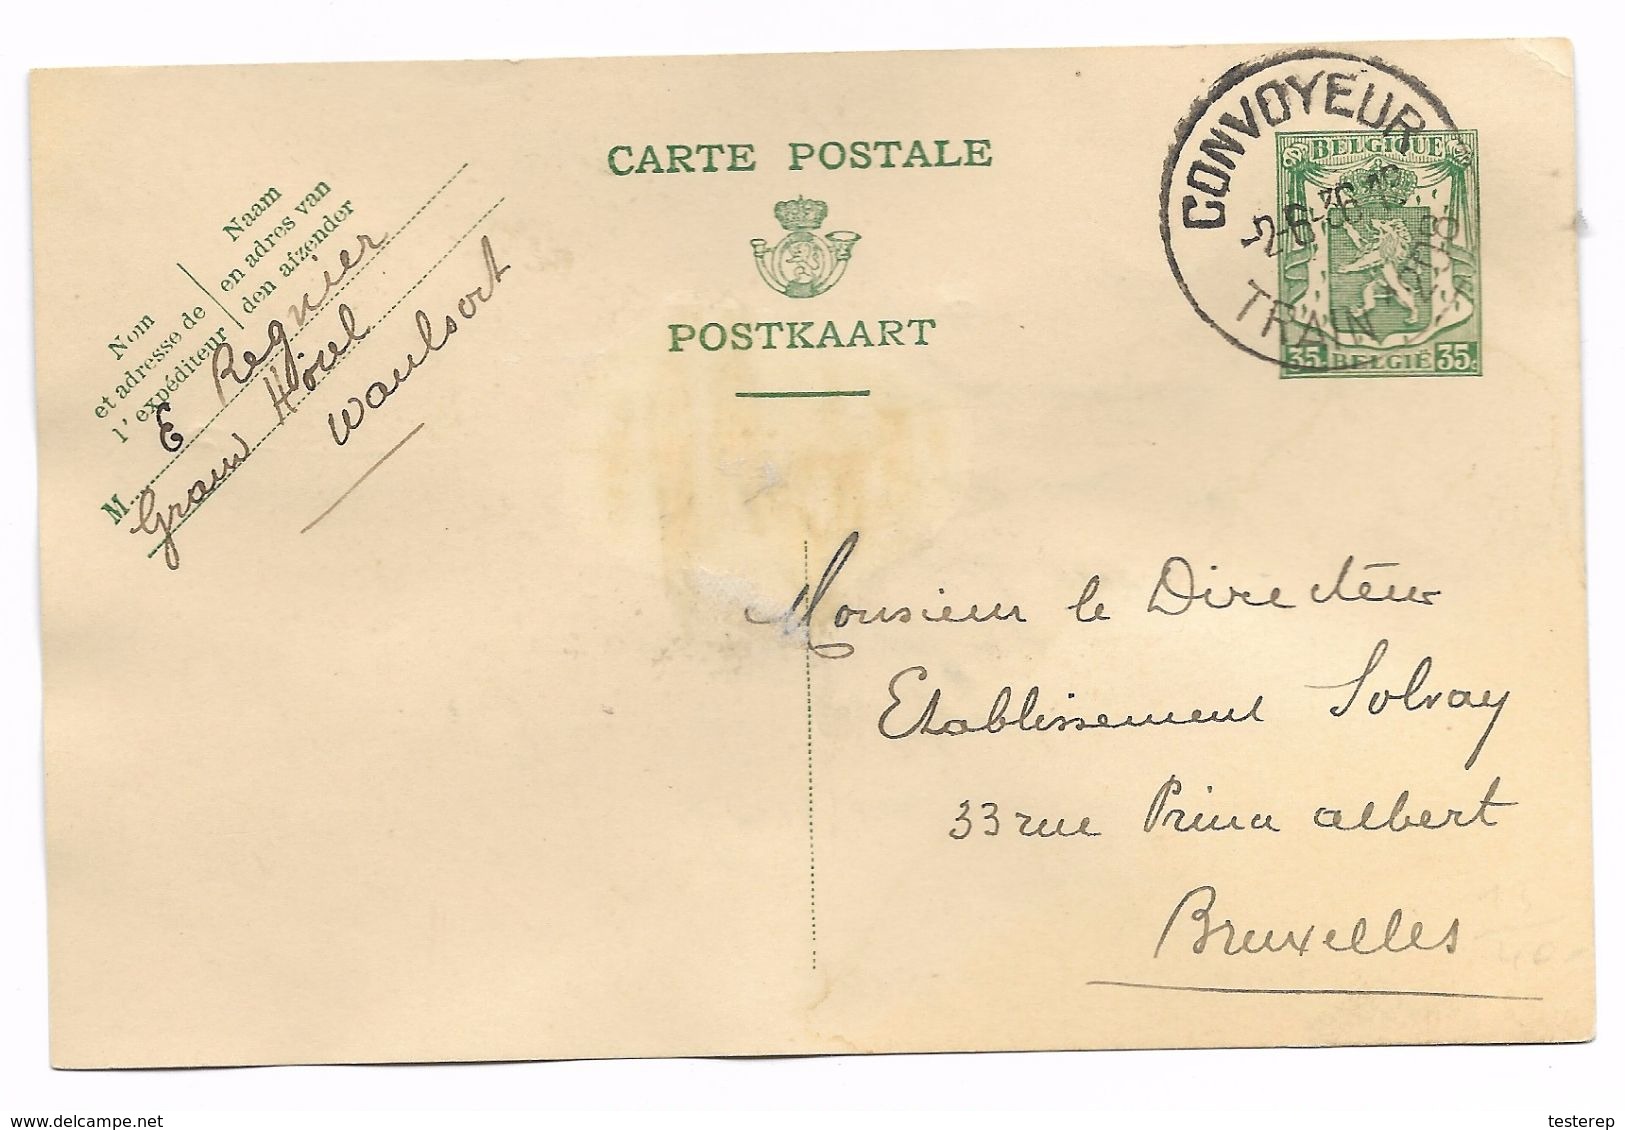 CARTE POSTALE
POSTKAART
Nom
et adresse de
l'expéditeur
Naam
en adres van
den afzender
M
E Regnier
Grand Hôtel
Waulsort
CONVOYEUR
-2-6-36
TRAIN
BELGIQUE
35 BELGIË 35c
Monsieur le Directeur
Etablissement Solvay
33 rue Prince albert
Bruxelles
delcampe.net
testerep